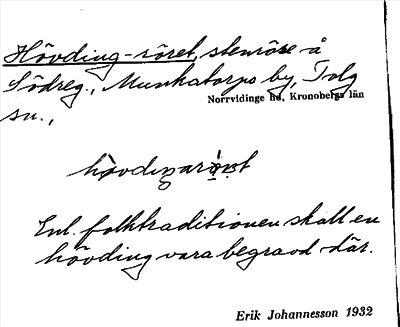 Hövding-röret, stenröse å
Södreg., Munkatorps by, Tolg
Norrvidinge hd, Kronobergs län
sn.,
Enl. folktraditionen skall en
hövding vara begravd där.
Erik Johannesson 1932